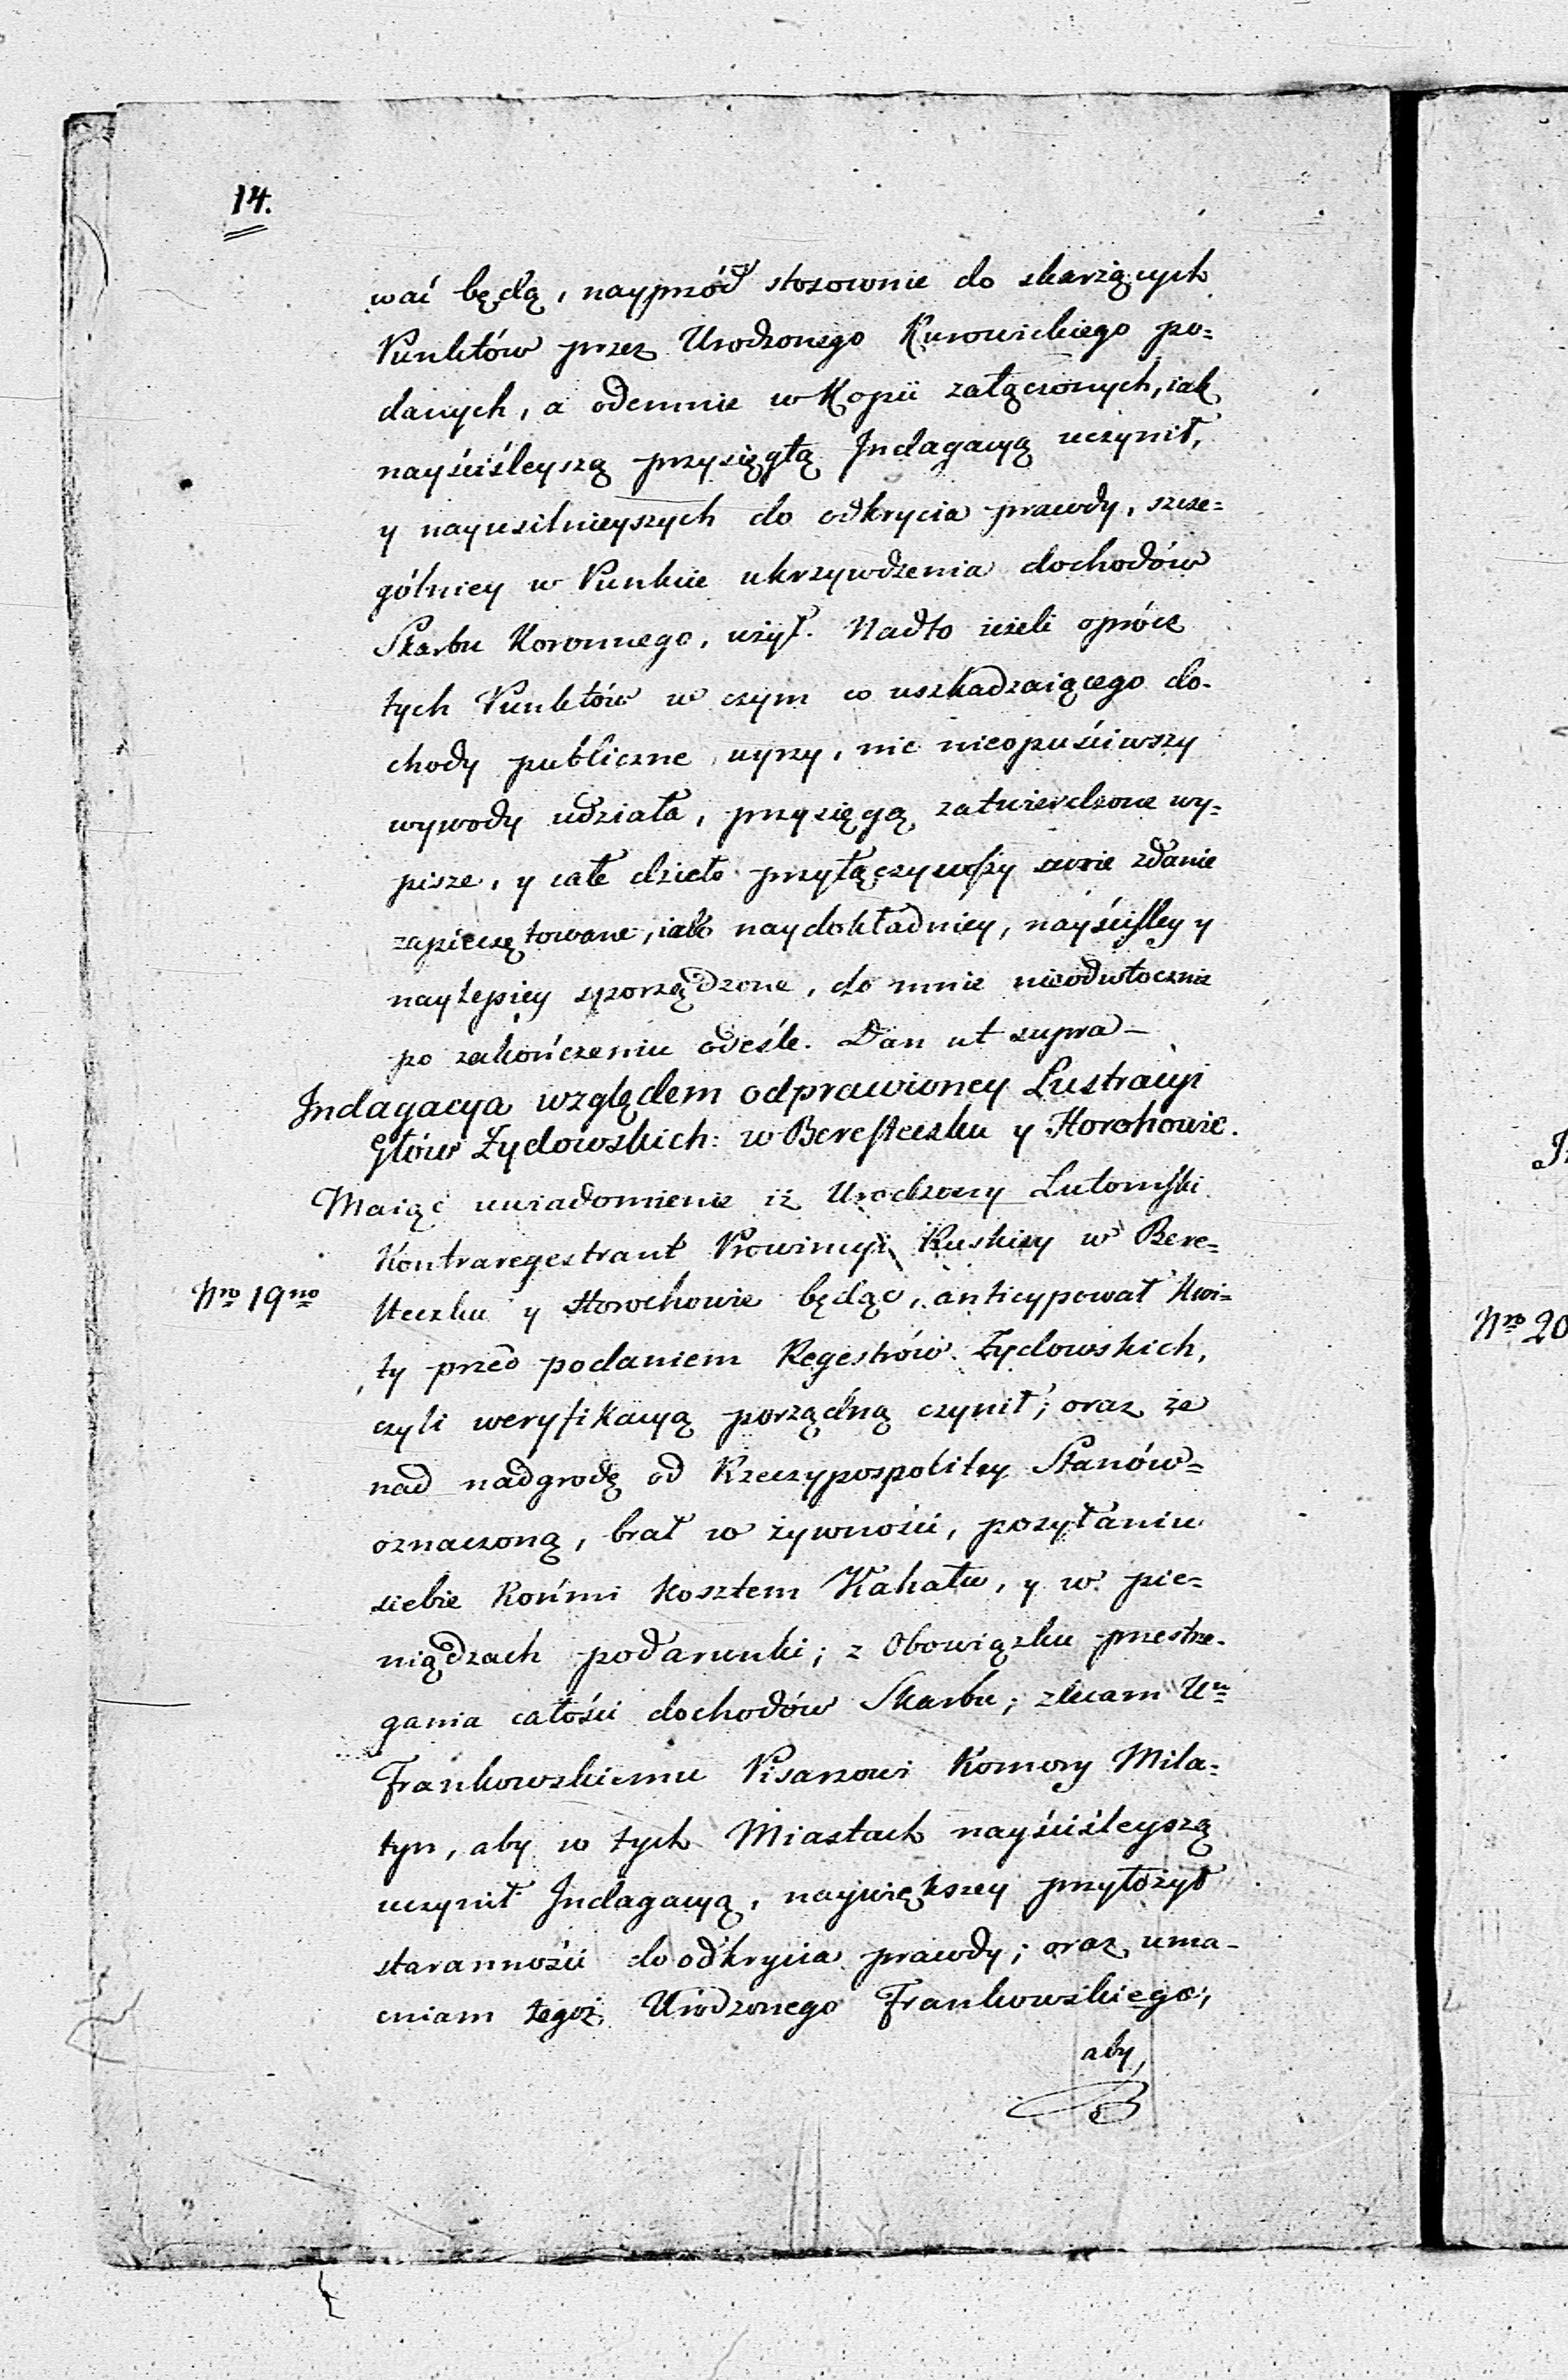 14.
wać będą, nayprzód stosownie do skarżących
Punktów przez Urodzonego Kurowickiego po=
danych, a odemnie w Kopii załączonych, iak
nayściśleyszą przysięgłą Indagacyą uczynił,
y nayusilnieyszych do odkrycia prawdy, szcze=
gólniey w Punkcie ukrzywdzenia dochodów
Skarbu Koronnego, użył. Nadto ieżeli oprócz
tych Punktów w czym co uszkadzaiącego do-
chody publiczne uyrzy, nic nieopuściwszy
wywody udziała, przysięgą zatwierdzone wy=
pisze, y całe dzieło przyłączywszy swoie zdanie
zapieczętowane, iako naydokładniey, nayściśley y
naylepiey sporządzone, do mnie nieodwłocznie
po zakończeniu odeśle. Dan ut supra –
Indagacya względem odprawioney Lustracyi
Głów Żydowskich: w Beresteczku y Horohowie.
Maiąc uwiadomienie iż Urodzony Lutomski
Kontraregestrant Prowincyi Ruskiey w Bere=
Nro 19no
steczku y Horochowie będąc, anticypował Kwi=
ty przed podaniem Regestrów Żydowskich,
czyli weryfikacyą porządną czynił; oraz że
nad nadgrodę od Rzeczypospolitey Stanów=
oznaczoną, brał w żywności, posyłaniu
siebie Końmi kosztem Kahału, y w pie=
niądzach podarunki; z Obowiązku przestrze-
gania całości dochodów Skarbu; zlecam Uu
Frankowskiemu Pisarzowi Komory Mila=
tyn, aby w tych Miastach nayściśleyszą
uczynił Indagacyą, naywiększey przyłożył
staranności do odkrycia prawdy; oraz uma-
cniam tegoż Urodzonego Frankowskiego;
aby
Nro 20